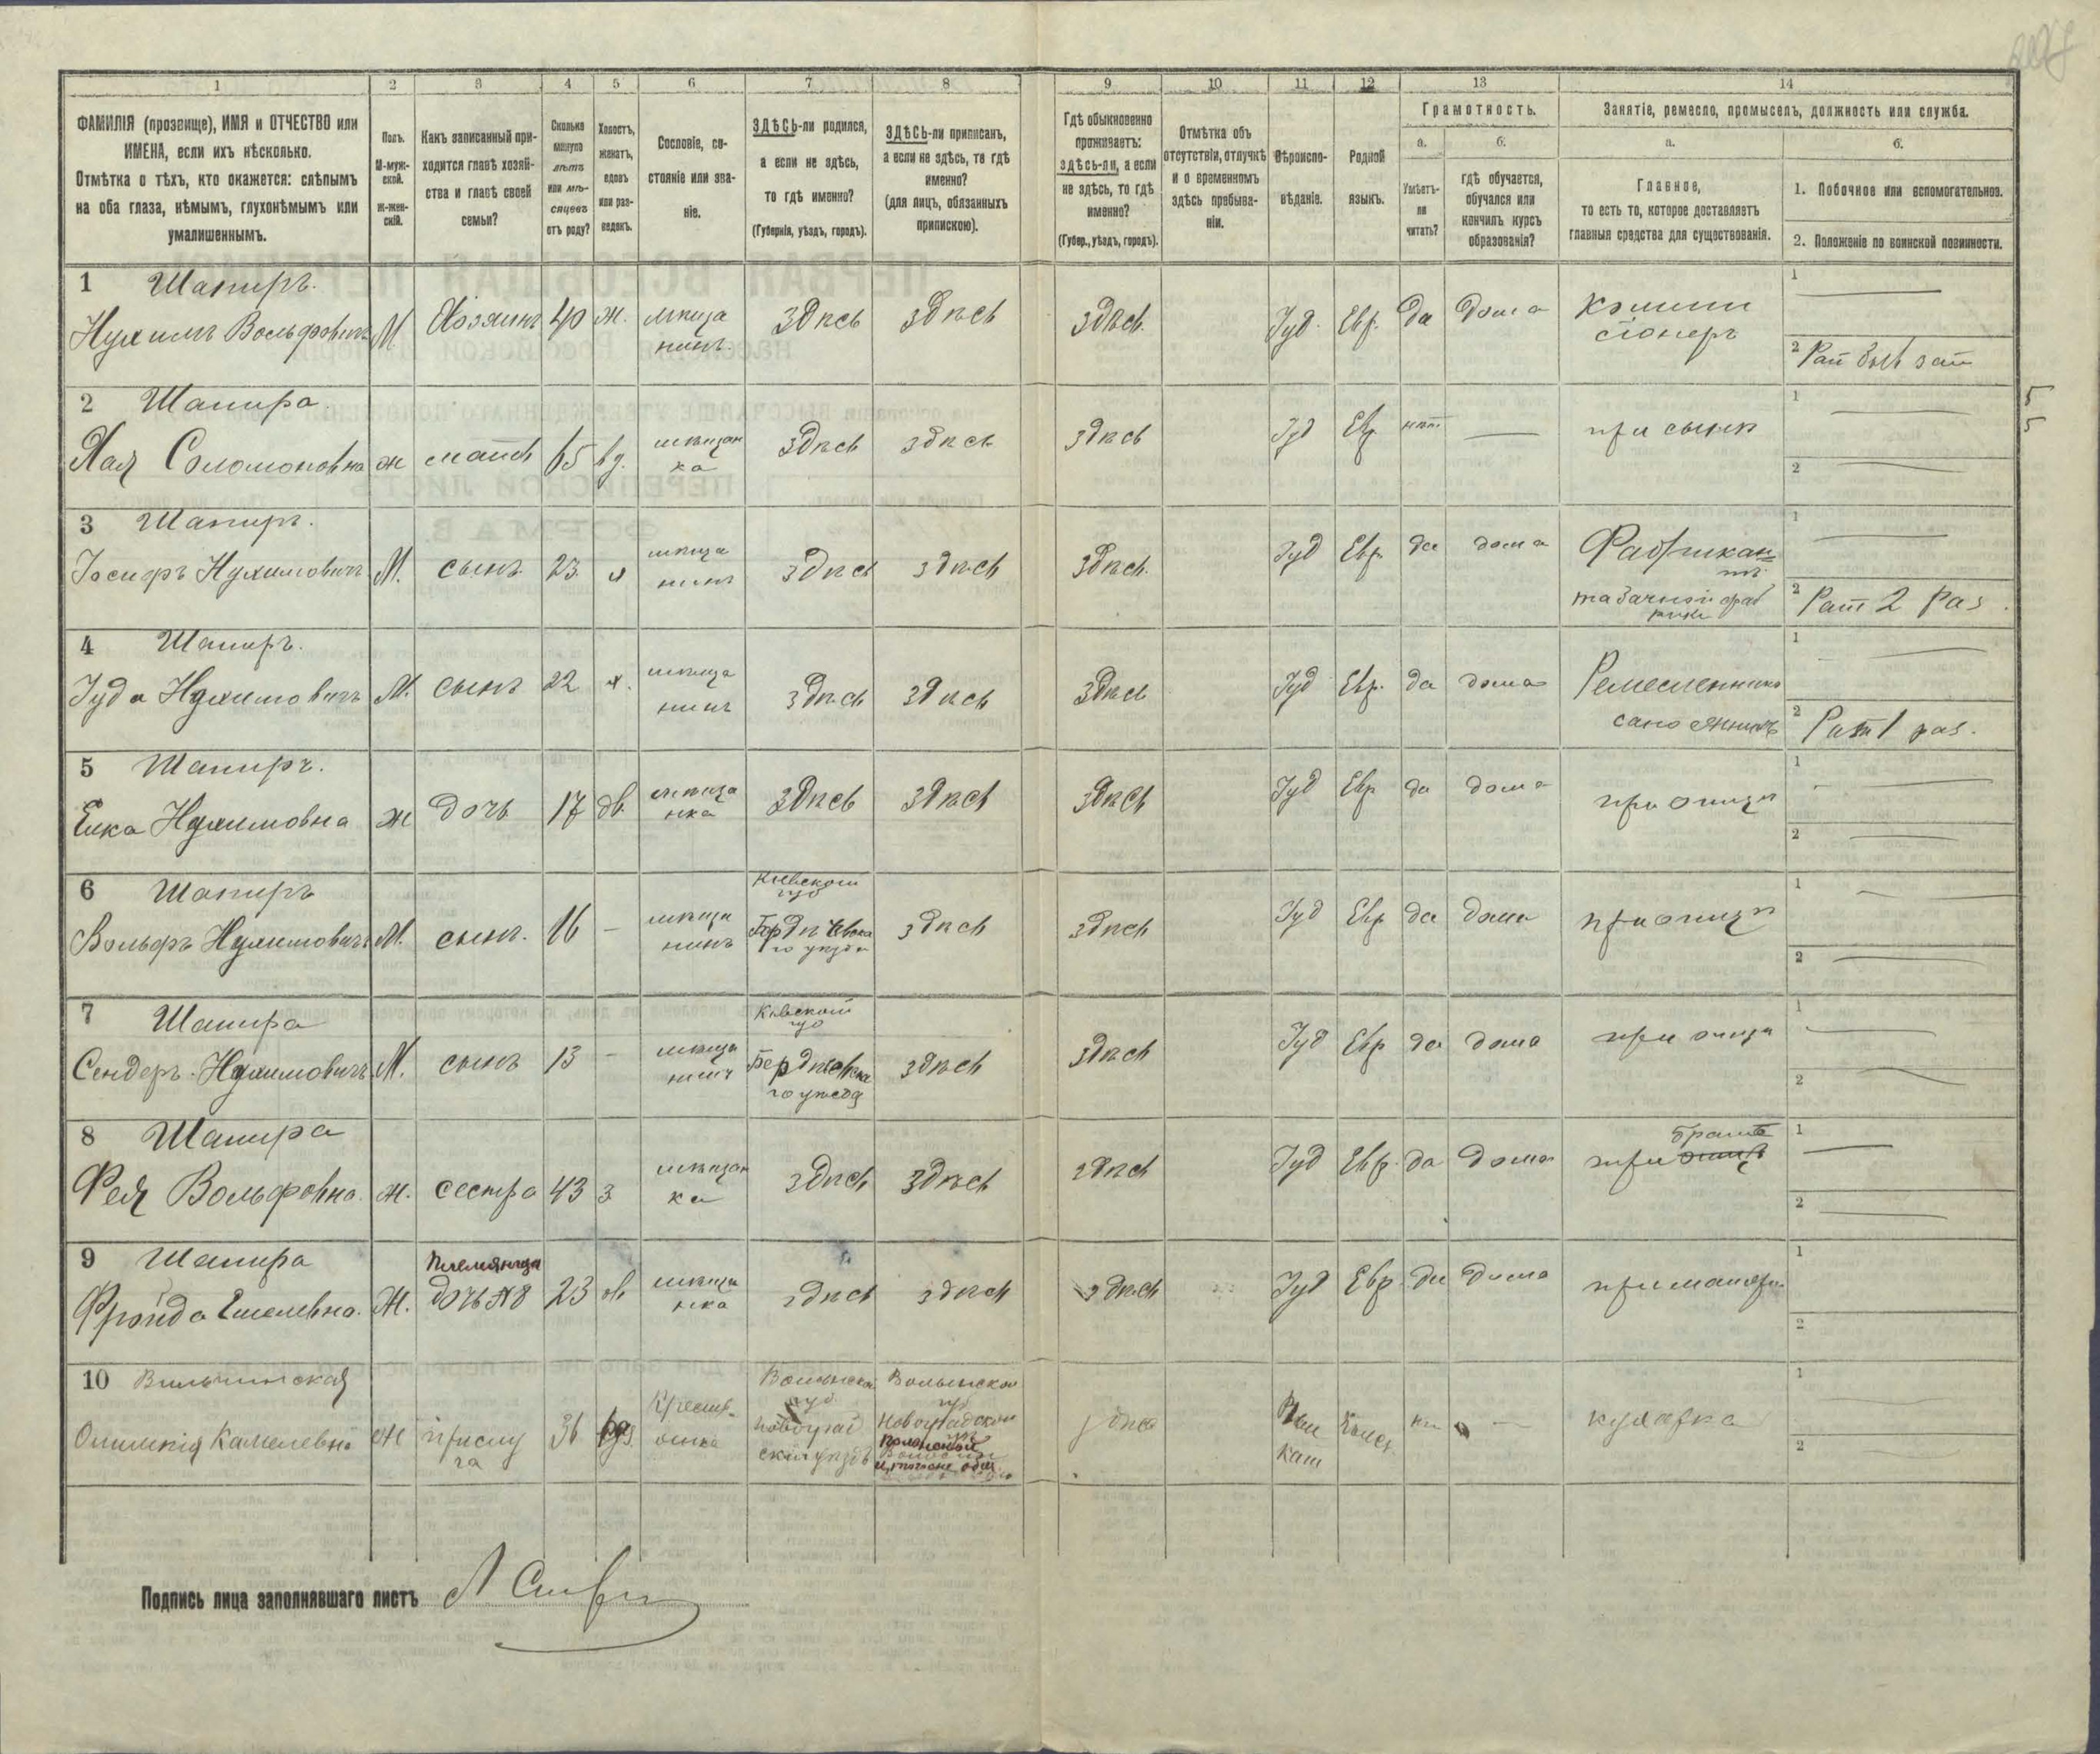 1 2 3 4 5 6 7 8 9 10 11 12 13 14
ФАМИЛІЯ (прозвище), ИМЯ и ОТЧЕСТВО или
ИМЕНА, если ихъ нѣсколько.
Отмѣтка о тѣхъ, кто окажется: слѣпымъ
на оба глаза, нѣмымъ, глухонѣмымъ или
умалишеннымъ.
Полъ.
М-муж-
ской.
ж-жен-
скій.
Какъ записанный при-
ходится главѣ хозяй-
ства и главѣ своей
семьи?
Сколько
минуло
лѣтъ
или мѣ-
сяцевъ
отъ роду?
Холостъ,
женатъ,
вдовъ
или раз-
веденъ.
Сословіе, со-
стояніе или зва-
ніе.
ЗДѢСЬ-ли родился,
а если не здѣсь,
то гдѣ именно?
(Губернія, уѣздъ, городъ).
ЗДѢСЬ-ли приписанъ,
а если не здѣсь, то гдѣ
именно?
(для лицъ, обязанныхъ
припискою).
Гдѣ обыкновенно
проживаетъ:
здѣсь-ли, а если
не здѣсь, то гдѣ
именно?
(Губер., уѣздъ, городъ).
Отмѣтка объ
отсутствіи, отлучкѣ
и о временномъ
здѣсь пребыва-
ніи.
Вѣроиспо-
вѣданіе.
Родной
языкъ.
Грамотность.
а.
Умѣетъ-
ли
читать?
б.
гдѣ обучается,
обучался или
кончилъ курсъ
образованія?
Занятіе, ремесло, промыселъ, должность или служба.
а.
Главное,
то есть то, которое доставляетъ
главныя средства для существованія.
б.
1. Побочное или вспомогательное.
2. Положеніе по воинской повинности.
1 Шапиръ.
Нухимъ Вольфовичъ М. Хозяинъ 40 ж. мѣща
нинъ. здѣсь здѣсь здѣсь. Іуд. Евр. да дома Коммис
сіонеръ
1
2
2 Шапира
Хая Соломоновна ж мать 65 вд. мѣщан
ка здѣсь здѣсь здѣсь Іуд Евр нѣт — при сынѣ
1
2
3 Шапиръ.
Іосифъ Нухимовичъ М. сынъ 23 х мѣща
нинъ здѣсь здѣсь здѣсь. Іуд Евр. да дома Фабрикан
тъ
табачной фаб
рики
1
2 Рат 2 раз.
4 Шапиръ.
Іуда Нухимовичъ М. сынъ 22 х. мѣща
нинъ здѣсь здѣсь здѣсь Іуд Евр. да дома Ремесленникъ
1
2 Рат 1 раз.
5 Шапиръ.
Елка Нухимовна ж дочь 17 дв. мѣща
нка здѣсь здѣсь здѣсь Іуд Евр да дома при отцѣ
1
2
6 Шапиръ
Вольфъ Нухимовичъ М. сынъ. 16 – мѣща
нинъ Кіевской
губ
Бердичевска
го уѣзда здѣсь здѣсь Іуд Евр да дома при отцѣ
1
2
7 Шапира
Сендеръ Нухимовичъ М. сынъ 13 – мѣща
нинъ Кіевской
губ
Бердичевска
го уѣзда здѣсь здѣсь Іуд Евр да дома при отцѣ
1
2
8 Шапира
Фейга Вольфовна ж. сестра 43 з мѣщан
ка здѣсь здѣсь здѣсь Іуд Евр. да дома при отцѣ братѣ
1
2
9 Шапира
Ж. Племянница
дочь №8 23 дв мѣща
нка здѣсь здѣсь здѣсь Іуд Евр. да дома при матери
1
2
10
ж прислу
га 36 Крестья
Волынской
губ
Новоград
скій уѣздъ Волынской
губ
Новоградской
здѣсь Рим
кат нѣт — кухарка
1
2
Подпись лица заполнявшаго листъ